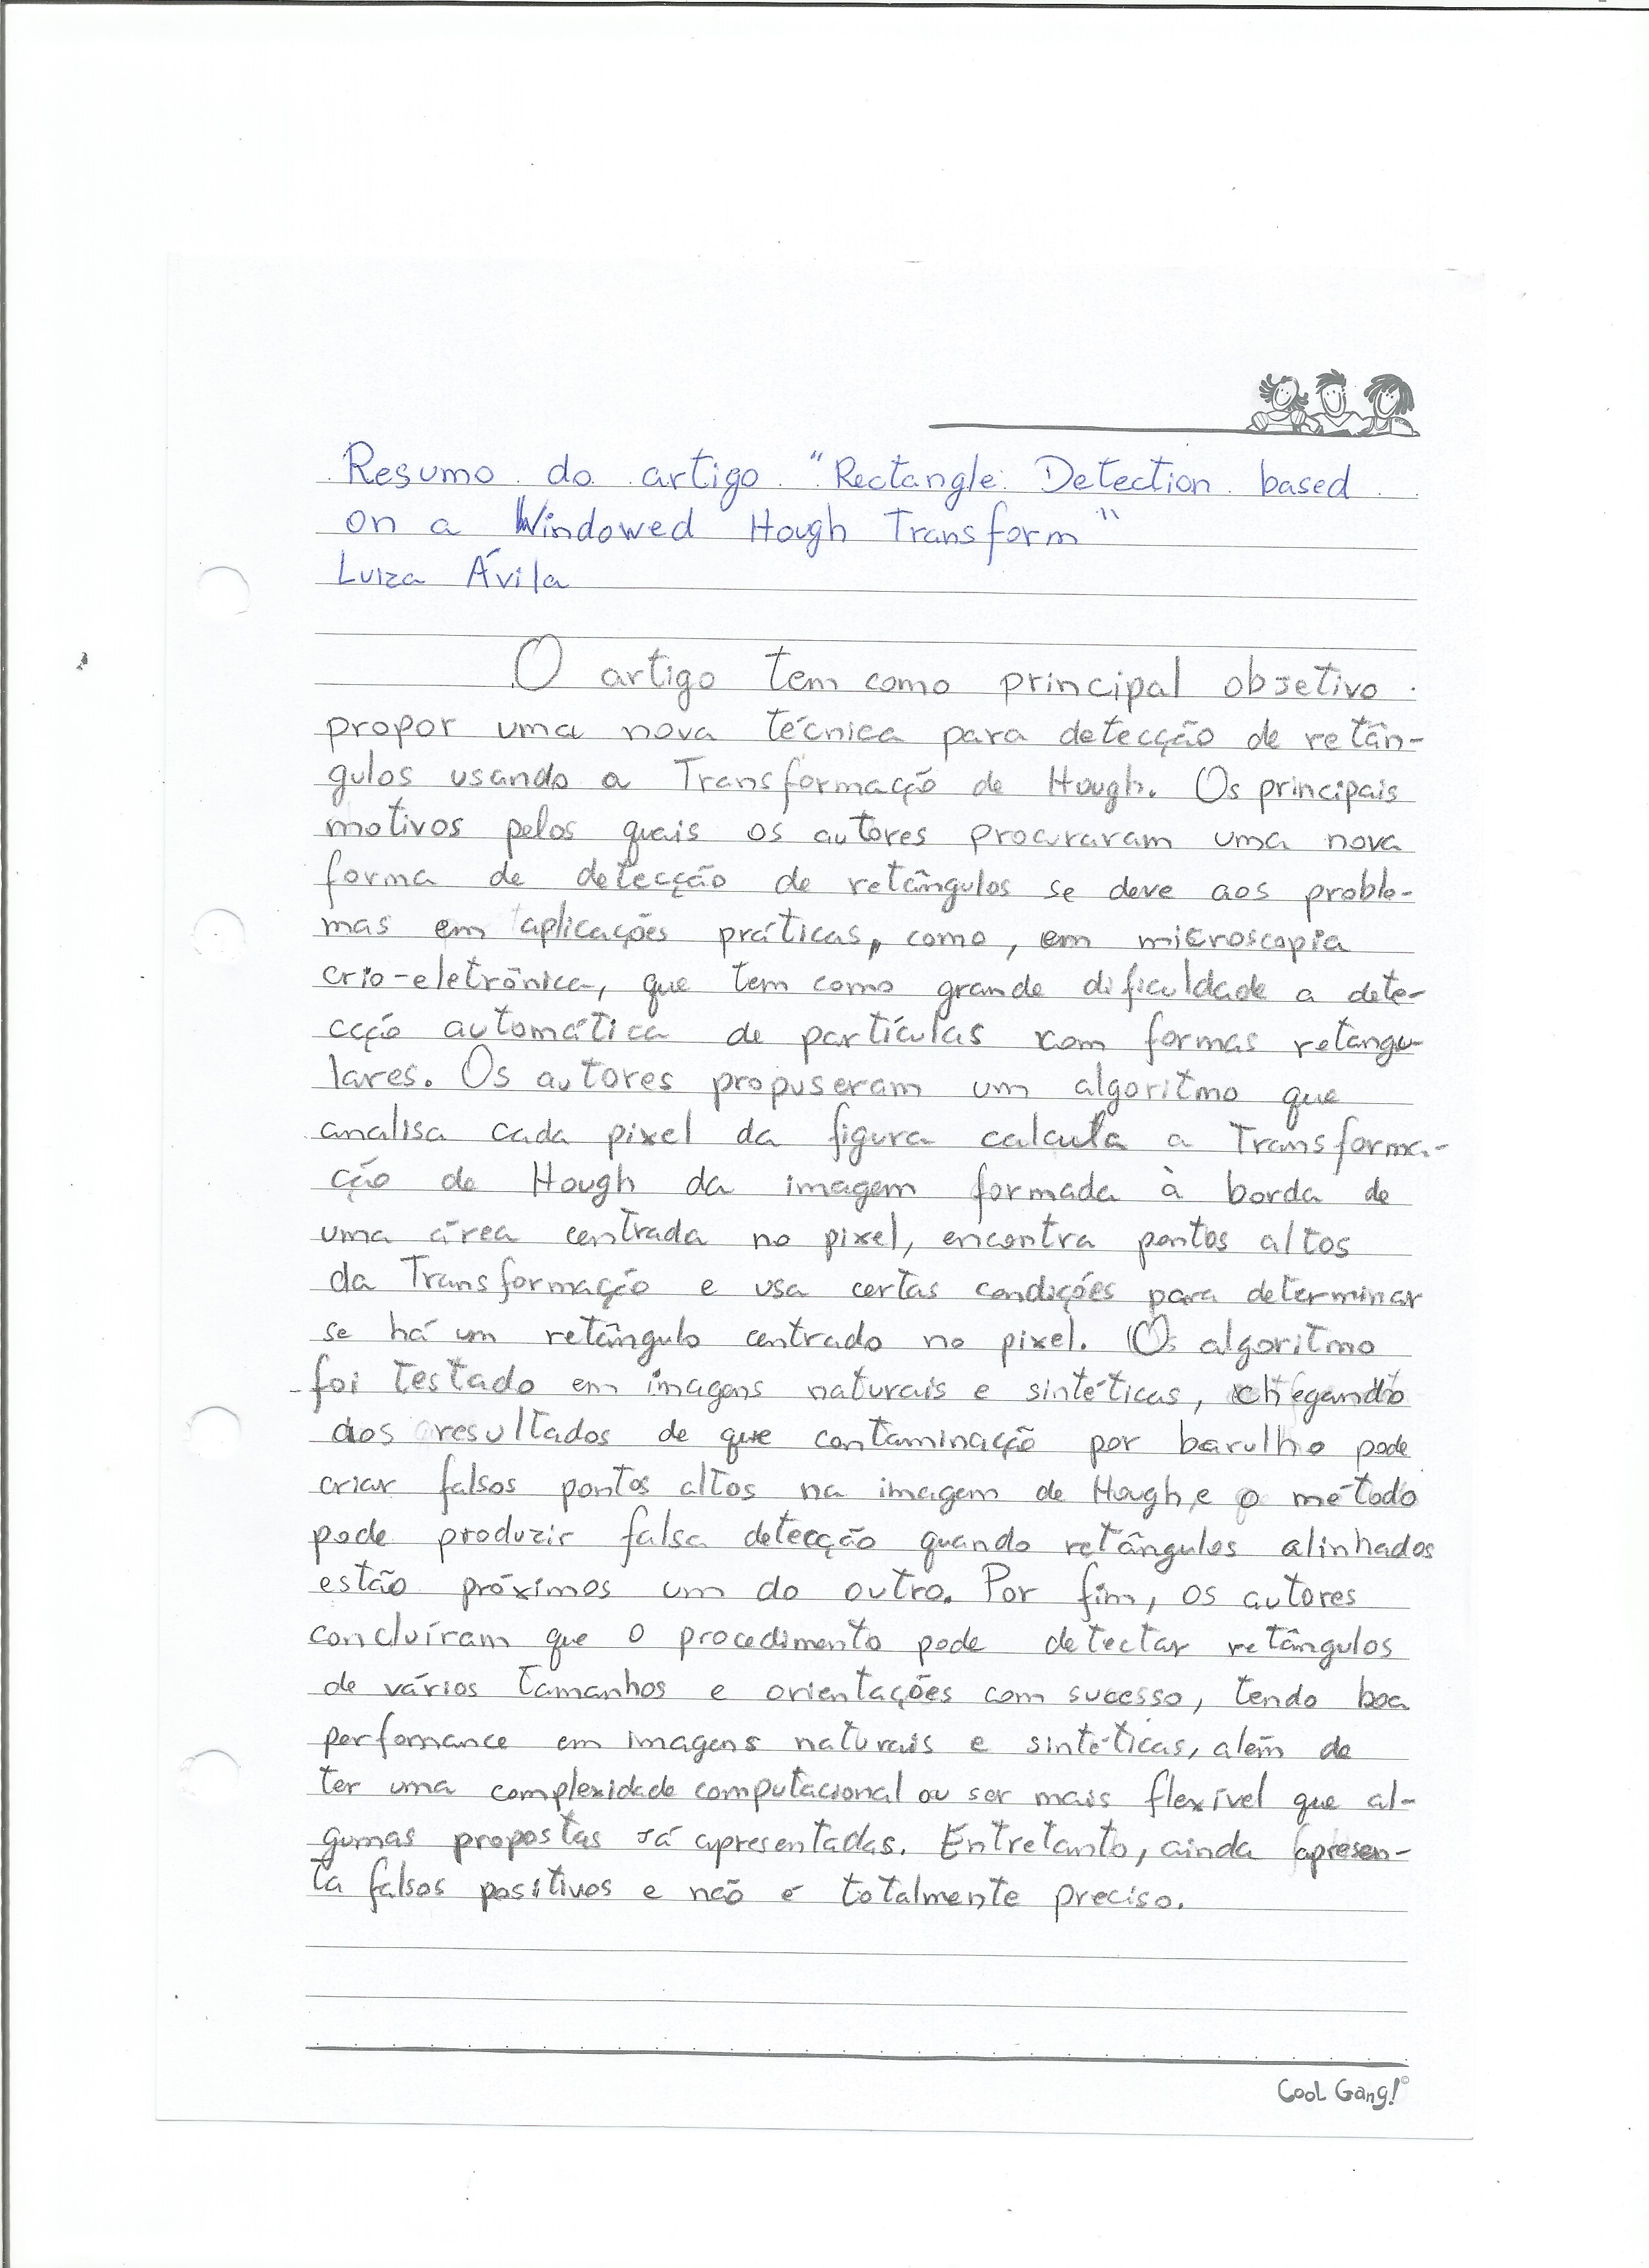 Resumo do artigo "Rectangle Detection based
on a Windowed Hough Transform"
Luiza Ávila
O artigo tem como principal objetivo
propor uma nova técnica para detecção de retân-
gulos usando a Transformação de Hough. Os principais
motivos pelos quais os autores procuraram uma nova
forma de detecção de retângulos se deve aos proble-
mas em aplicações práticas, como, em microscopia
crio-eletrônica, que tem como grande dificuldade a dete-
cção automática de partículas com formas retangu-
lares. Os autores propuseram um algoritmo que
analisa cada pixel da figura calcula a Transforma-
ção de Hough da imagem formada à borda de
uma área centrada no pixel, encontra pontos altos
da Transformação e usa certas condições para determinar
se há um retângulo centrado no pixel. O algoritmo
foi testado em imagens naturais e sintéticas, chegando
aos resultados de que contaminação por barulho pode
criar falsos pontos altos na imagem de Hough, e o método
pode produzir falsa detecção quando retângulos alinhados
estão próximos um do outro. Por fim, os autores
concluíram que o procedimento pode detectar retângulos
de vários tamanhos e orientações com sucesso, tendo boa
perfomance em imagens naturais e sintéticas, além de
ter uma complexidade computacional ou ser mais flexível que al-
gumas propostas já apresentadas. Entretanto, ainda apresen-
ta falsos positivos e não é totalmente preciso.
Cool Gang!©